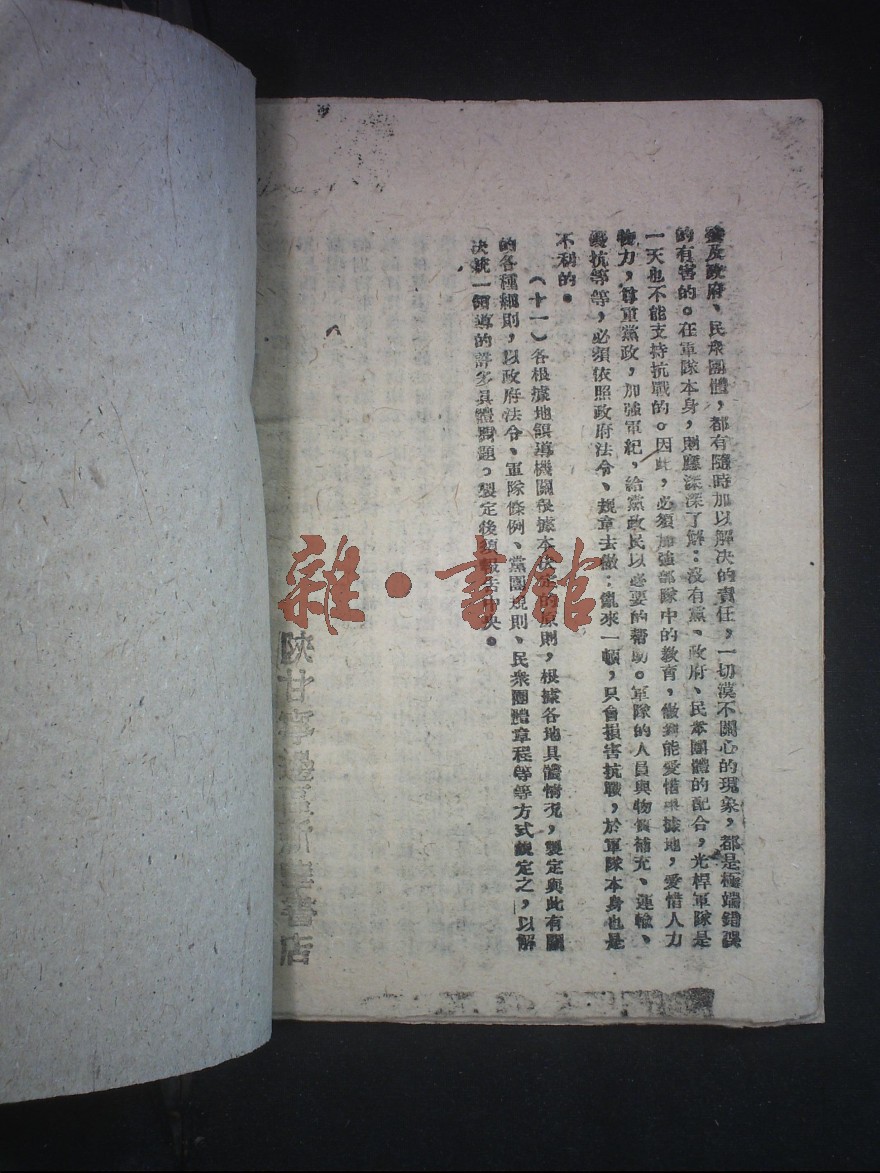 委及政府、民衆團體，都有隨時加以解决的責任，一切漠不關心的現象，都是極端錯誤
的有害的。在軍隊本身，則應深深了解：没有黨、政府、民衆團體的配合，光桿軍隊是
一天也不能支持抗戰的。因此，必須加强部隊中的教育，做到能愛惜根據地，愛惜人力
物力，尊重黨政，加强軍紀，給黨政民以必要的帮助。軍隊的人員與物質補充、運輸、
優抗等等，必須依照政府法令、規章去做；亂來一頓，只會損害抗戰，於軍隊本身也是
不利的。
（十一）各根據地領導機關根據本决定的原則，根據各地具體情况，製定與此有關
的各種細則，以政府法令、軍隊條例、黨團規則、民衆團體章程等等方式規定之，以解
决統一領導的許多具體問題。製定後須報告中央。
陝甘寧邊區新華書店
雜·書館